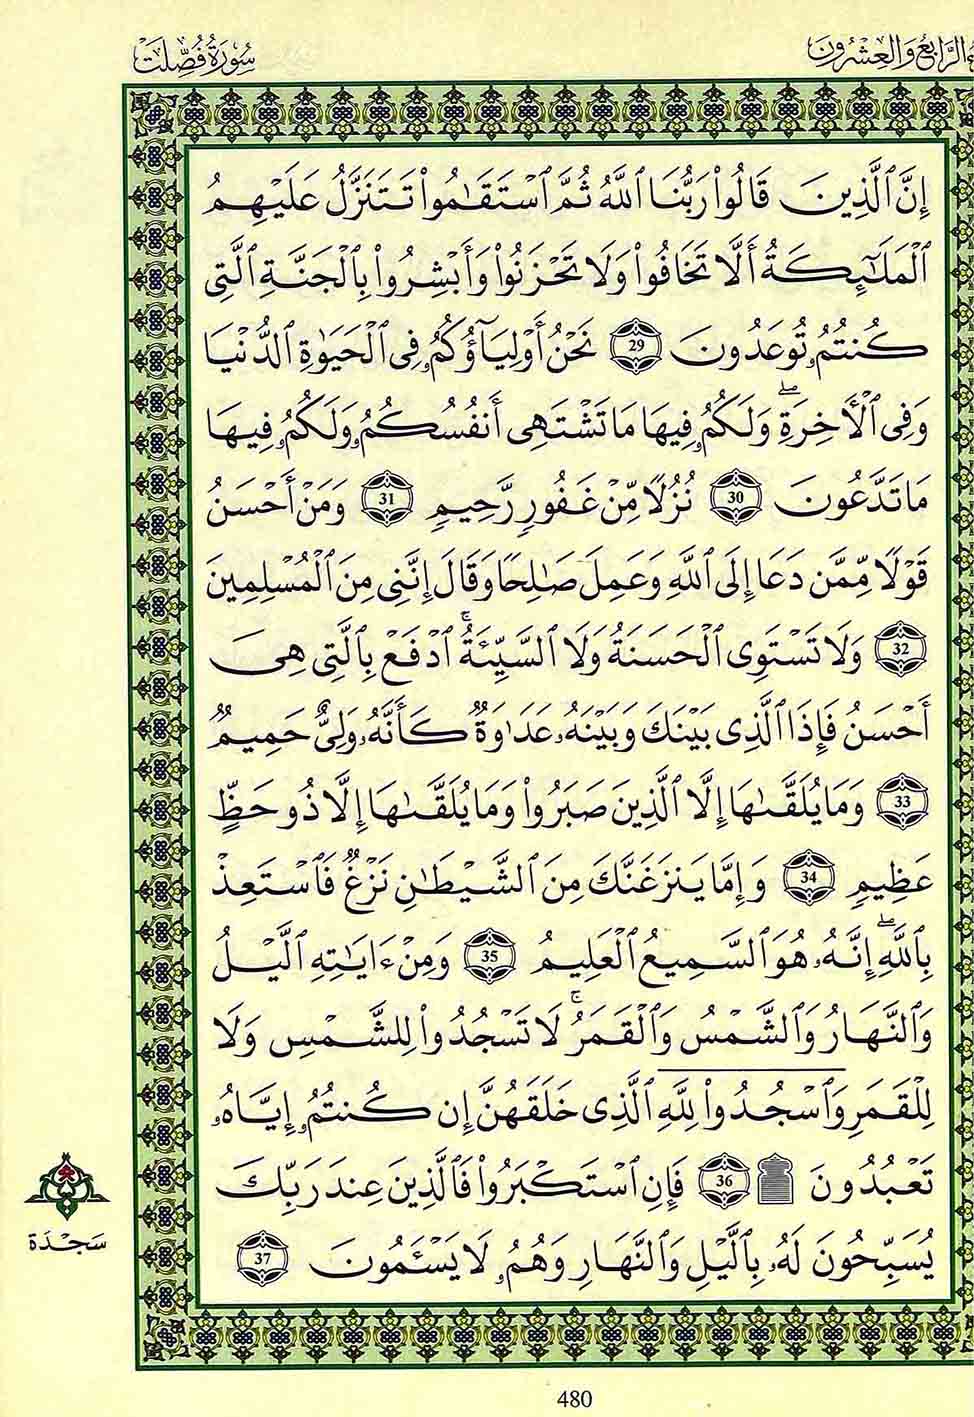 ءالرَّابِعُ وَالْعِشْرُونَ
سُورَةُ فُصِّلَتْ
إِنَّ ٱلَّذِينَ قَالُواْ رَبُّنَا ٱللَّهُ ثُمَّ ٱسْتَقَٰمُواْ تَتَنَزَّلُ عَلَيْهِمُ
ٱلْمَلَٰٓئِكَةُ أَلَّا تَخَافُواْ وَلَا تَحْزَنُواْ وَأَبْشِرُواْ بِالْجَنَّةِ ٱلَّتِى
كُنتُمُۥ تُوعَدُونَ 29 نَحْنُ أَوْلِيَآؤُكُمُۥ فِى ٱلْحَيَوٰةِ ٱلدُّنْيَا
وَفِى ٱلْأَخِرَةِۖ وَلَكُمُۥ فِيهَا مَا تَشْتَهِى أَنفُسُكُمُۥ وَلَكُمُۥ فِيهَا
مَا تَدَّعُونَ 30 نُزُلًا مِّنْ غَفُورٍ رَّحِيمٍ 31 وَمَنْ أَحْسَنُ
قَوْلًا مِّمَّن دَعَا إِلَى ٱللَّهِ وَعَمِلَ صَٰلِحًا وَقَالَ إِنَّنِى مِنَ ٱلْمُسْلِمِينَ
32 وَلَا تَسْتَوِى ٱلْحَسَنَةُ وَلَا ٱلسَّيِّئَةُۚ ٱدْفَعْ بِٱلَّتِى هِىَ
أَحْسَنُ فَإِذَا ٱلَّذِى بَيْنَكَ وَبَيْنَهُۥ عَدَٰوَةٌ كَأَنَّهُۥ وَلِىٌّ حَمِيمٌ
33 وَمَا يُلَقَّىٰهَا إِلَّا ٱلَّذِينَ صَبَرُواْ وَمَا يُلَقَّىٰهَا إِلَّا ذُو حَظٍّ
عَظِيمٍ 34 وَإِمَّا يَنزَغَنَّكَ مِنَ ٱلشَّيْطَٰنِ نَزْغٌ فَٱسْتَعِذْ
بِٱللَّهِۖ إِنَّهُۥ هُوَ ٱلسَّمِيعُ ٱلْعَلِيمُ 35 وَمِنْ ءَايَٰتِهِ ٱلَّيْلُ
وَٱلنَّهَارُ وَٱلشَّمْسُ وَٱلْقَمَرُۚ لَا تَسْجُدُواْ لِلشَّمْسِ وَلَا
لِلْقَمَرِ وَٱسْجُدُواْ لِلَّهِ ٱلَّذِى خَلَقَهُنَّ إِن كُنتُمُۥ إِيَّاهُۥ
تَعْبُدُونَ ۩ 36 فَإِنِ ٱسْتَكْبَرُواْ فَٱلَّذِينَ عِندَ رَبِّكَ
يُسَبِّحُونَ لَهُۥ بِٱلَّيْلِ وَٱلنَّهَارِ وَهُمُۥ لَا يَسْـَٔمُونَ 37
سَجْدَة
480